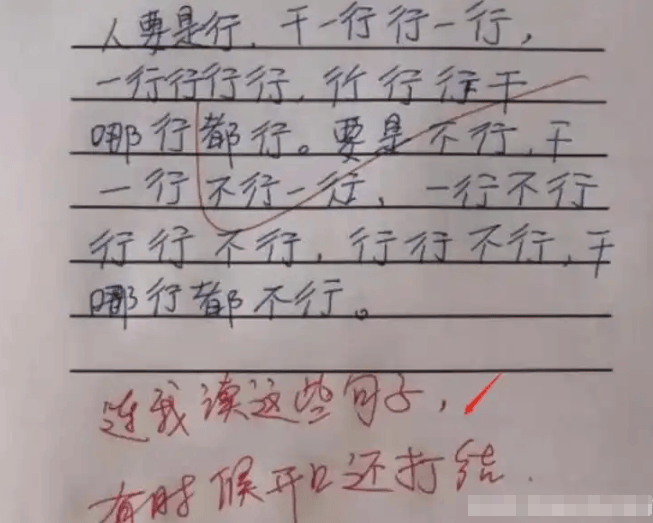 人要是行，干一行行一行，
一行行行行，行行行干
哪行都行。要是不行，干
一行不行一行，一行不行
行行不行，行行不行，干
哪行都不行。
连我读这些句子，
有时候开口还打结.